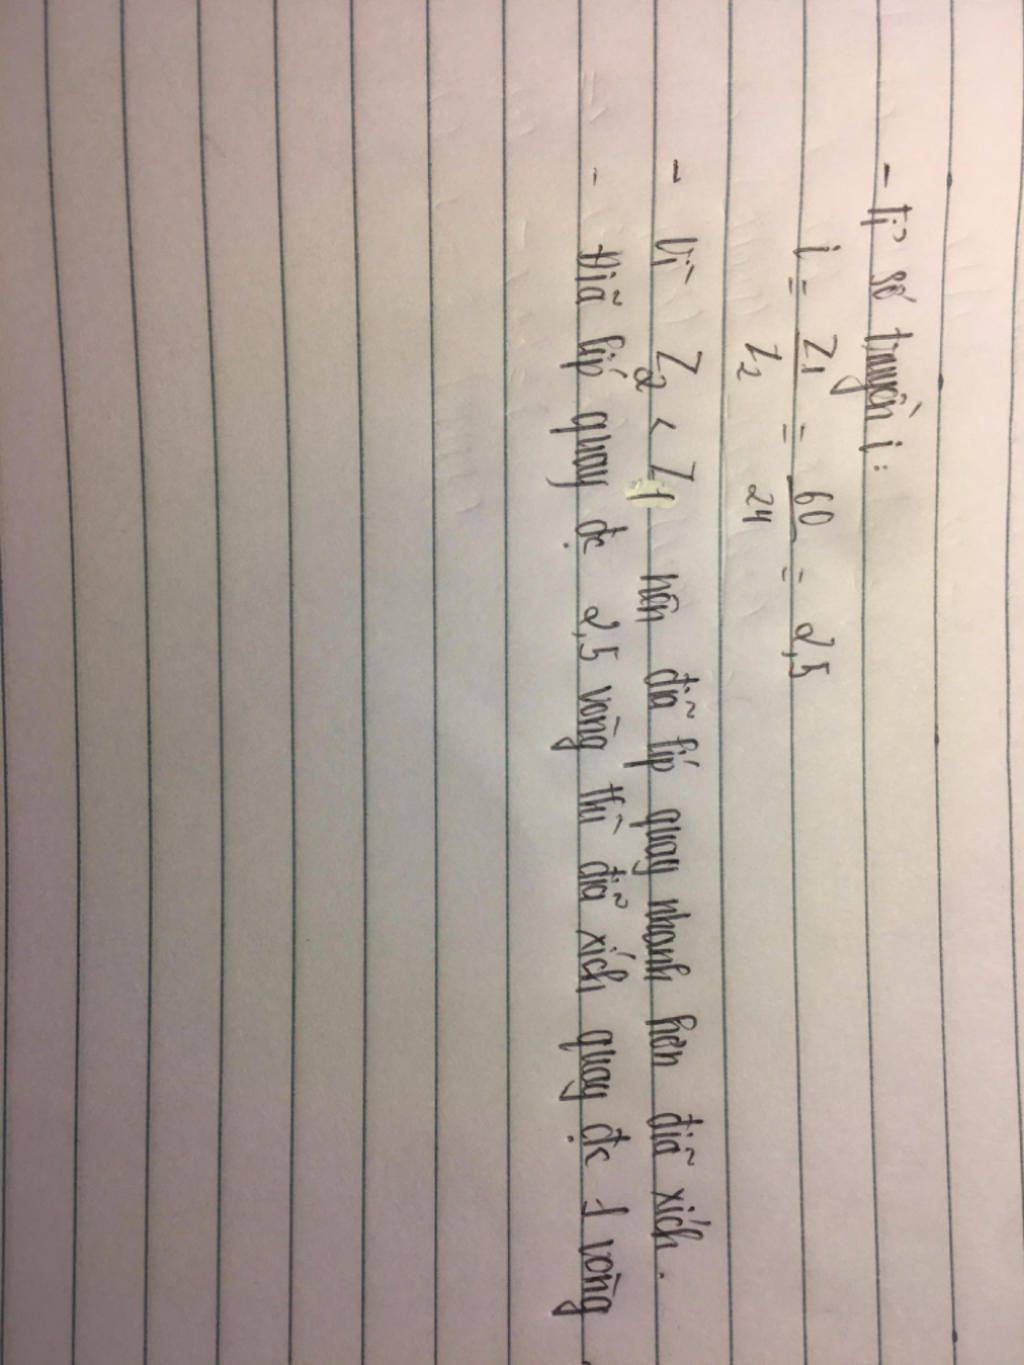 - tỉ số truyền i:
i = Z1/Z2 = 60/24 = 2,5
- Vì Z2 < Z1 nên đĩa líp quay nhanh hơn đĩa xích.
- Đĩa líp quay đc 2,5 vòng thì đĩa xích quay đc 1 vòng